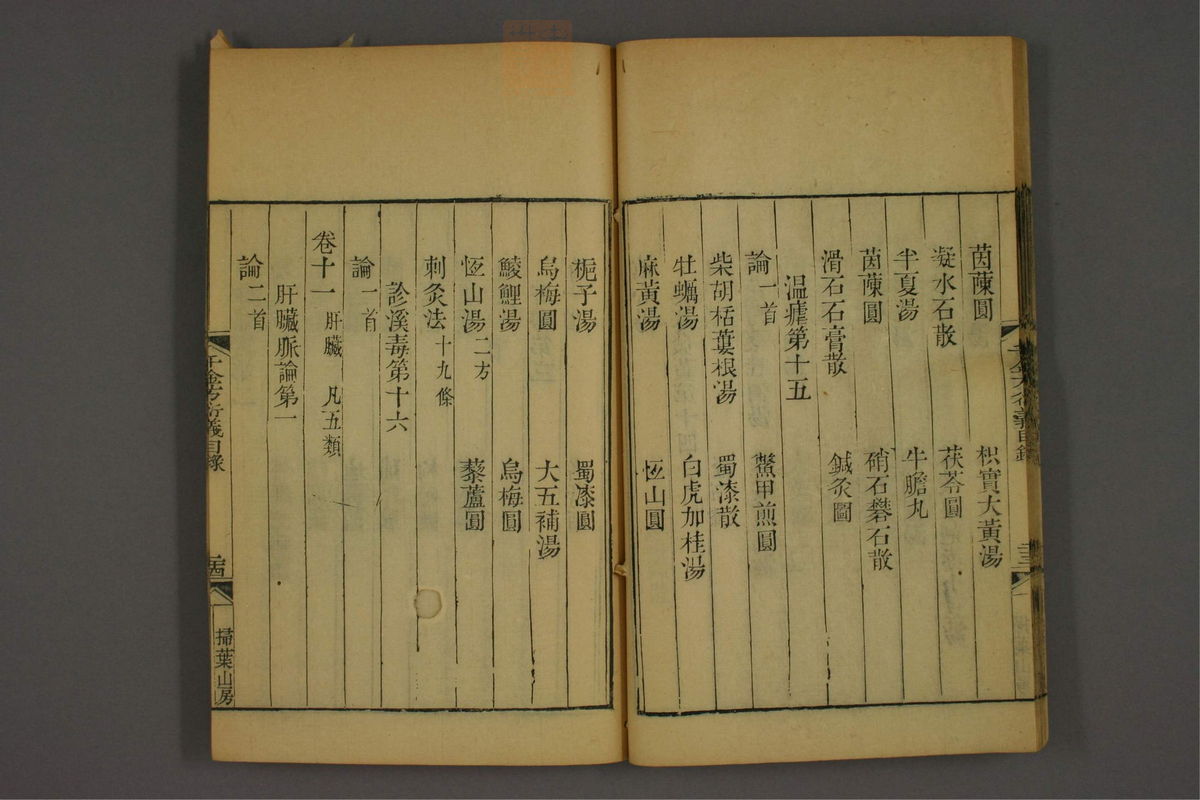 茵蔯圓　枳實大黃湯
凝水石散　茯苓圓
半夏湯　牛膽丸
茵蔯圓　硝石礬石散
滑石石膏散　鍼灸圖
温瘧第十五
論一首　鱉甲煎圓
柴胡栝蔞根湯　蜀漆散
牡蠣湯　白虎加桂湯
麻黃湯　恆山圓
梔子湯　蜀漆圓
烏梅圓　大五補湯
鯪鯉湯　烏梅圓
恆山湯二方　藜蘆圓
刺灸法十九條
診溪毒第十六
論一首
卷十一　肝臟　凡五類
肝臟脈論第一
論二首
千金方衍義目錄
掃葉山房